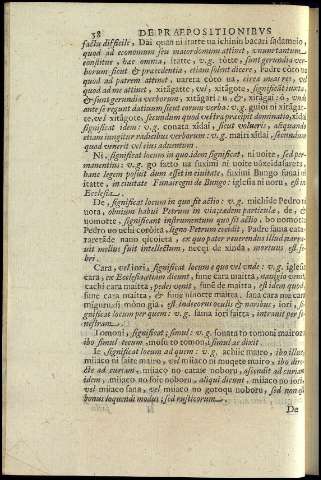 38 DE PRÆPOSITIONIBVS
factu difficile, Dai quan ni itatte va ichinin bacari sadameio,
quod ad œconomum seu maiordomum attinet, vnum tantum
constitue, hæc omnia, itatte, v.g. totte, sunt gerundia ver-
borum sicut & præcedentia, etiam solent dicere, Padre coto va
quod ad patrem attinet, vareta coto va, circa nos res, vel
quod ad me attinet, xitǎgatte, vel, xitǎgote, significāt iuxta,
& sunt gerundia verborum, xitǎgǎri: u, &, xitǎgai: ó,
ante se regunt datiuum sicut eorum verba: v.g. guioi ni xitǎgat-
te, vel xitǎgote, secundum quod vestra præcipit dominatio, xidai
significat idem: v.g. conata xidai, sicut volueris, aliquando
etiam iungitur radicibus verborum: v.g. mairi xidai, secundum
quod venerit vel eius aduentum.
Ni, significat locum in quo idem significat, ni voite, sed per-
manentius: v.g. go fatto va fuximi ni voite
hanc legem posuit dum esset in ciuitate, fuximi Bungo funai ni
itatte, in ciuitate Funai regni de Bungo: iglesia ni voru, est in
Ecclesia.
De, significat locum in quo fit actio: v.g. michide Pedro ni
vota, obuium habui Petrum in via, eadem particula, de, &
vomotte, significāt instrumentum quo fit actio, bo nomotte
Pedro vo uchi corōita, ligno Petrum occidit, Padre sama cata
nayo qicoita, ex quo pater reuerendus illud
uit melius fuit intellectum, necqi de xinda, mortuus est fe-
bri.
Cara, vel iori, significat locum a quo vel vnde: v.g. iglesia
cara, ex Ecclesia actum dicunt, fune cara maitta, nauigio venit,
cachi cara maitta, pedes venit, funé de maitta, est idem quod,
fune cara maitta, & fune ni notte maitta, fana cara me cara
miguruxi mono gia, est indecorus oculis & naribus, iori, si-
gnificat locum per quem: v.g. fama iori faitta, intrauit per fe-
nestram.
Tomoni, significat; simul: v.g. sonata to tomoni mairoru
ibo simul tecum, moto to tomoni, simul ac dixit
Ie significat locum ad quem: v.g. achiie mairo, ibo illuc,
miiaco ie faite mairo, vel miiaco ni muqete mairo, ibo dire-
cte ad curiam, miiaco no cataie noboru, ascendit ad curiam
idem, miiaco no foie noboru, aliqui dicunt, miiaco no iori,
vel miiaco sana, vel miiaco no gotoqu noboru, sed non est
bonus loquendi modus; sed rusticorum.
De